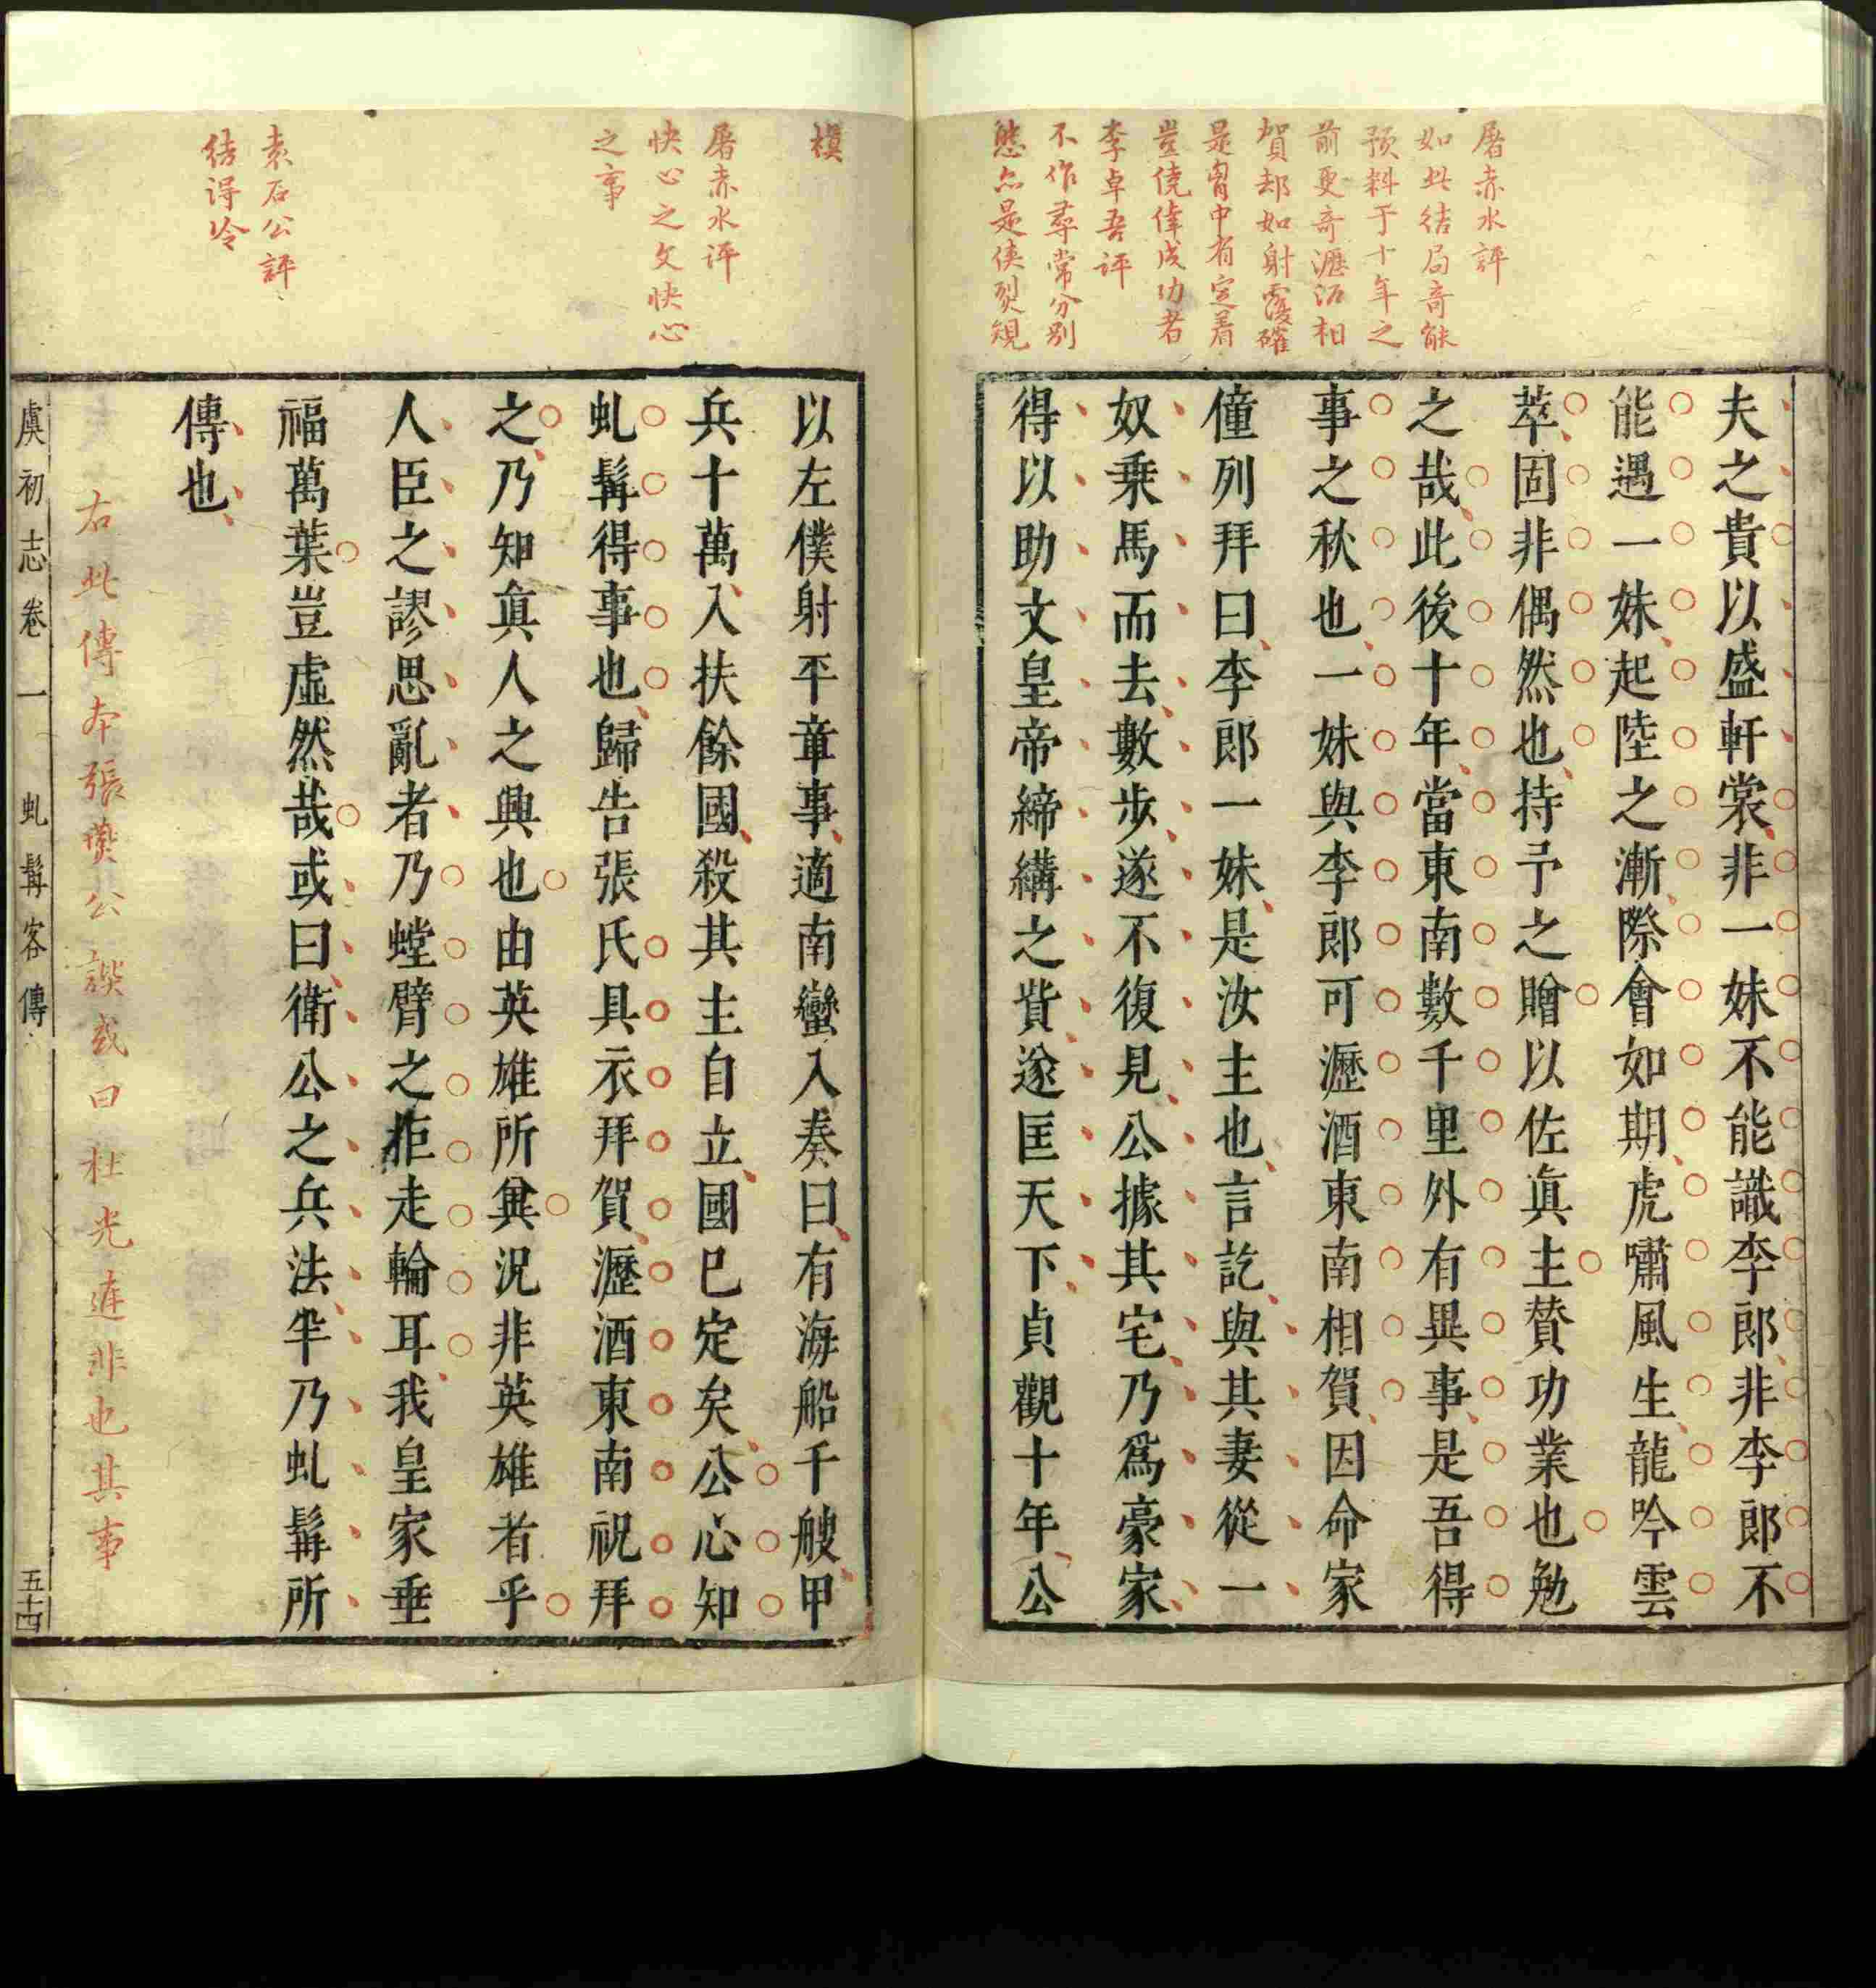 屠赤水評
如此結局奇能
預料于十年之
前更奇瀝酒相
賀却如射覆確
是胷中有定着
豈僥倖成功者
李卓吾評
不作尋常分別
態亦是俠烈規
夫之貴以盛軒裳非一妹不能識李郎非李郎不
能遇一妹起陸之漸際會如期虎嘯風生龍吟雲
萃固非偶然也持予之贈以佐眞主贊功業也勉
之哉此後十年當東南數千里外有異事是吾得
事之秋也一妹與李郎可瀝酒東南相賀因命家
僮列拜曰李郎一妹是汝主也言訖與其妻從一
奴乗馬而去數步遂不復見公據其宅乃爲豪家
得以助文皇帝締構之貲遂匡天下貞觀十年公
模
屠赤水評
快心之文快心
之事
袁石公評
結得冷
以左僕射平章事適南蠻入奏曰有海船千艘甲
兵十萬入扶餘國殺其主自立國已定矣公心知
虬髯得事也歸告張氏具衣拜賀瀝酒東南祝拜
之乃知眞人之興也由英雄所兾況非英雄者乎
人臣之謬思亂者乃螳臂之拒走輪耳我皇家垂
福萬葉豈虛然哉或曰衛公之兵法半乃虬髯所
傳也
右此傳本張燕公譔或曰杜光庭非也其事
虞初志卷一 虬髯客傳 五十四